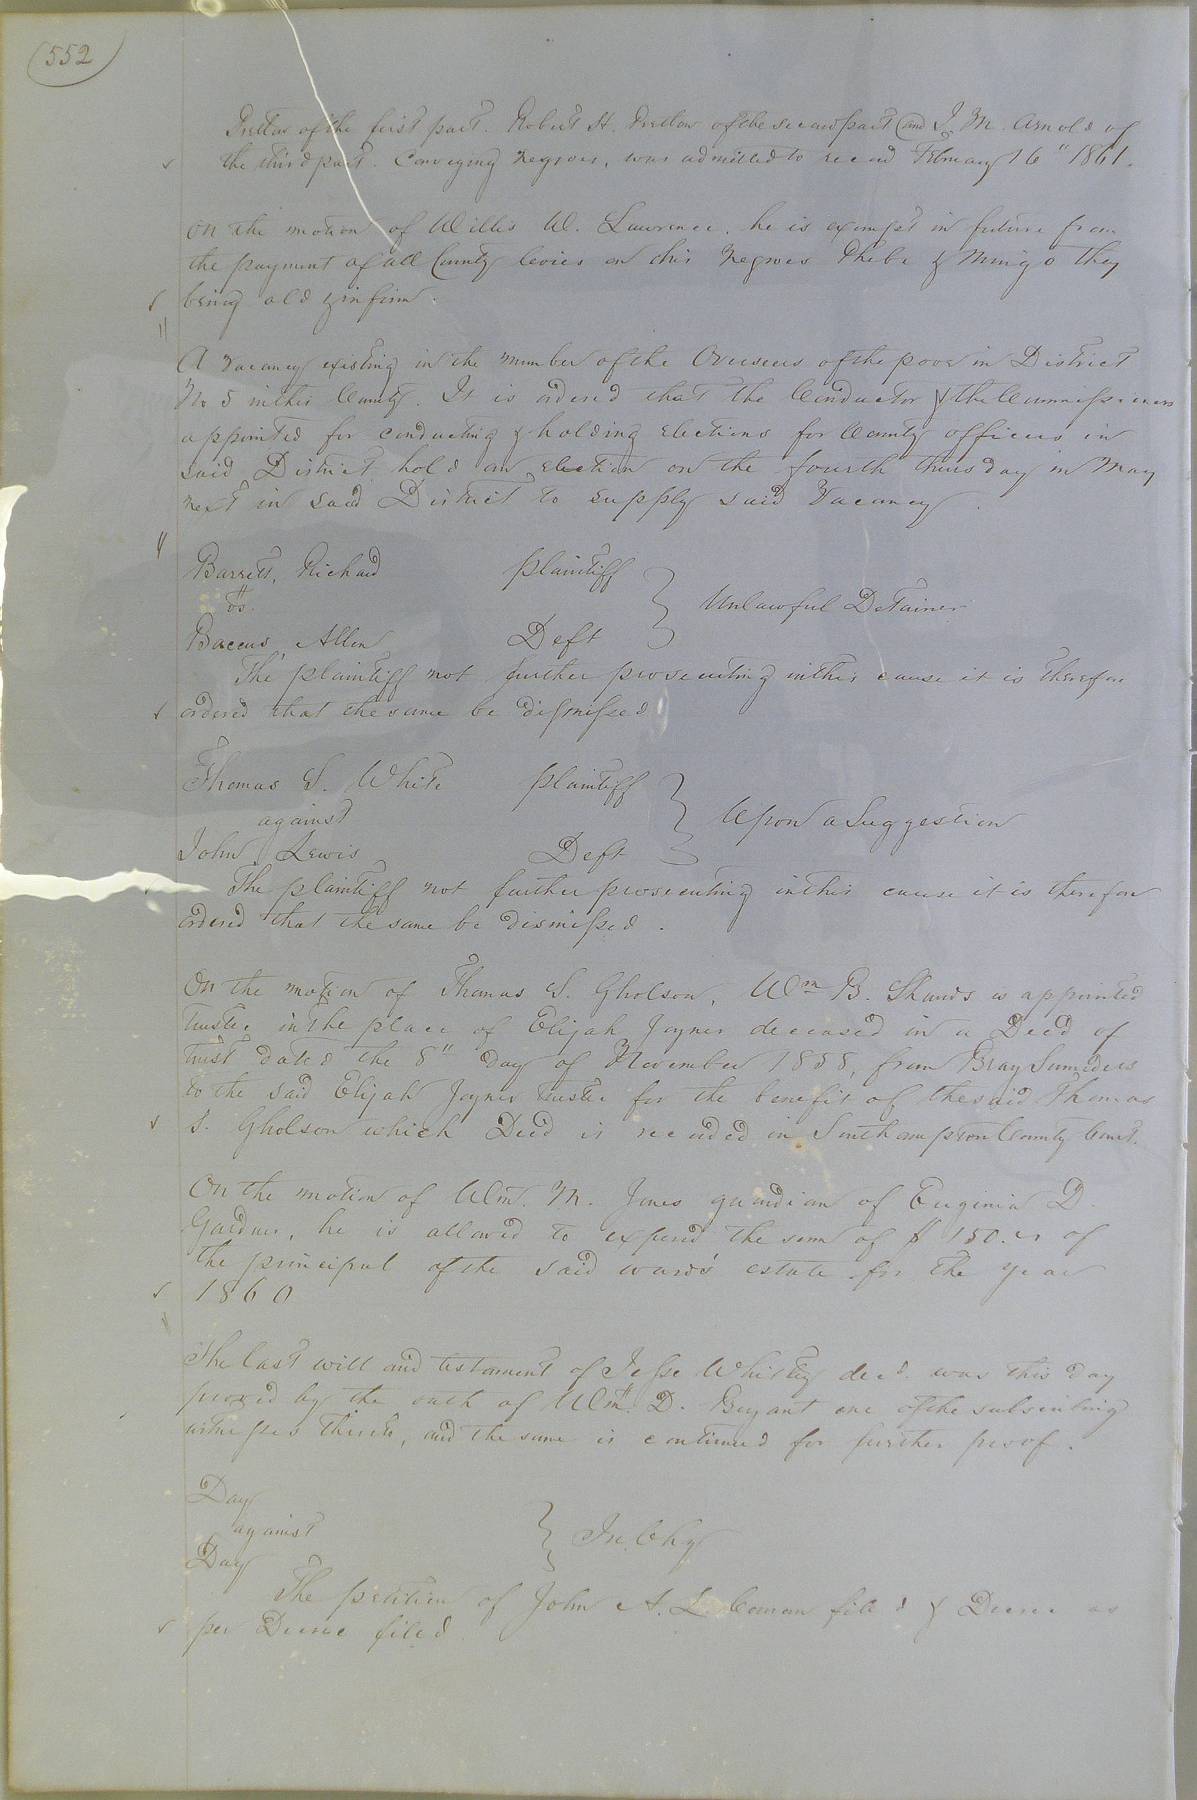 552
Pretlow of the first part. Robert H. Pretlow of the second part and J. M. Arnold of
the third part. Conveying Negroes, was admitted to record February 16" 1861.
On the motion of Willis W. Lawrence, he is exempt in future from
the payment of all County levies on his Negroes Phebe & Mingo they
being old & infirm.
A vacancy existing in the number of the Overseers of the poor in District
No 5 in this County. It is ordered that the Conductor & the Commissioners
appointed for conducting & holding elections for County officers in
said District hold an election on the fourth thursday in May
next in said District to supply said Vacancy.
Barrett, Richard plaintiff
vs.
Baccus, Allen Deft
Unlawful Detainer
The plaintiff not further prosecuting in this cause it is therefore
ordered that the same be dismissed
Thomas S. White plaintiff
against
John Lewis Deft
Upon a Suggestion
The plaintiff not further prosecuting in this cause it is therefore
ordered that the same be dismissed.
On the motion of Thomas S. Gholson, Wm B. Shands is appointed
trustee in the place of Elijah Joyner deceased in a Deed of
trust dated the 8" day of November 1858, from Bray
to the said Elijah Joyner trustee for the benefit of the said Thomas
S. Gholson which Deed is recorded in Southampton County Court.
On the motion of Wm. M. Jones guardian of Euginia D.
Gardner, he is allowed to expend the sum of $ 150. of
the principal of the said ward's estate for the year
1860
The last will and testament of Jesse Whitley decd. was this day
proved by the oath of Wm. D. Bryant one of the subscribing
witnesses thereto, and the same is continued for further proof.
Day
against
Day
In Chy
The petition of John A. L. filed & Decree as
per Decree filed